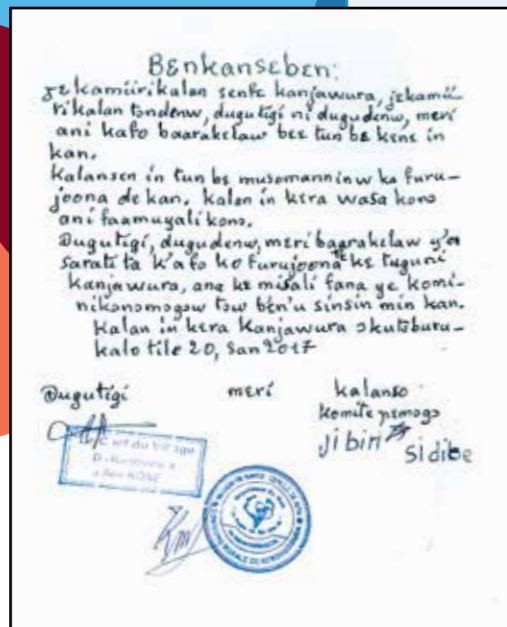 Bɛnkansɛbɛn:
jɛkamiirikalan senfɛ kanjawura, jɛkamii-
rikalan tɔndenw, dugutigi ni dugudenw, mɛri
ani kafo baarakɛlaw bɛɛ tun bɛ kɛnɛ in
kan.
Kalansen in tun bɛ musomanninw ka furu-
joona de kan. Kalan in kɛra wasa kɔnɔ
ani faamuyali kɔnɔ.
Dugutigi, dugudenw, mɛri baarakɛlaw y'a
sarati ta k'a fɔ ko furujoona tɛ kɛ tuguni
Kanjawura, ana kɛ misali fana ye komi-
nikɔnɔmɔgɔw tɔw bɛn'u sinsin min kan.
Kalan in kɛra Kanjawura ɔkutɔburu-
kalo tile 20, san 2017
Dugutigi mɛri kalanso
komite ɲɛmɔgɔ
Jibiri Sidibe
Chef du Village
KONE